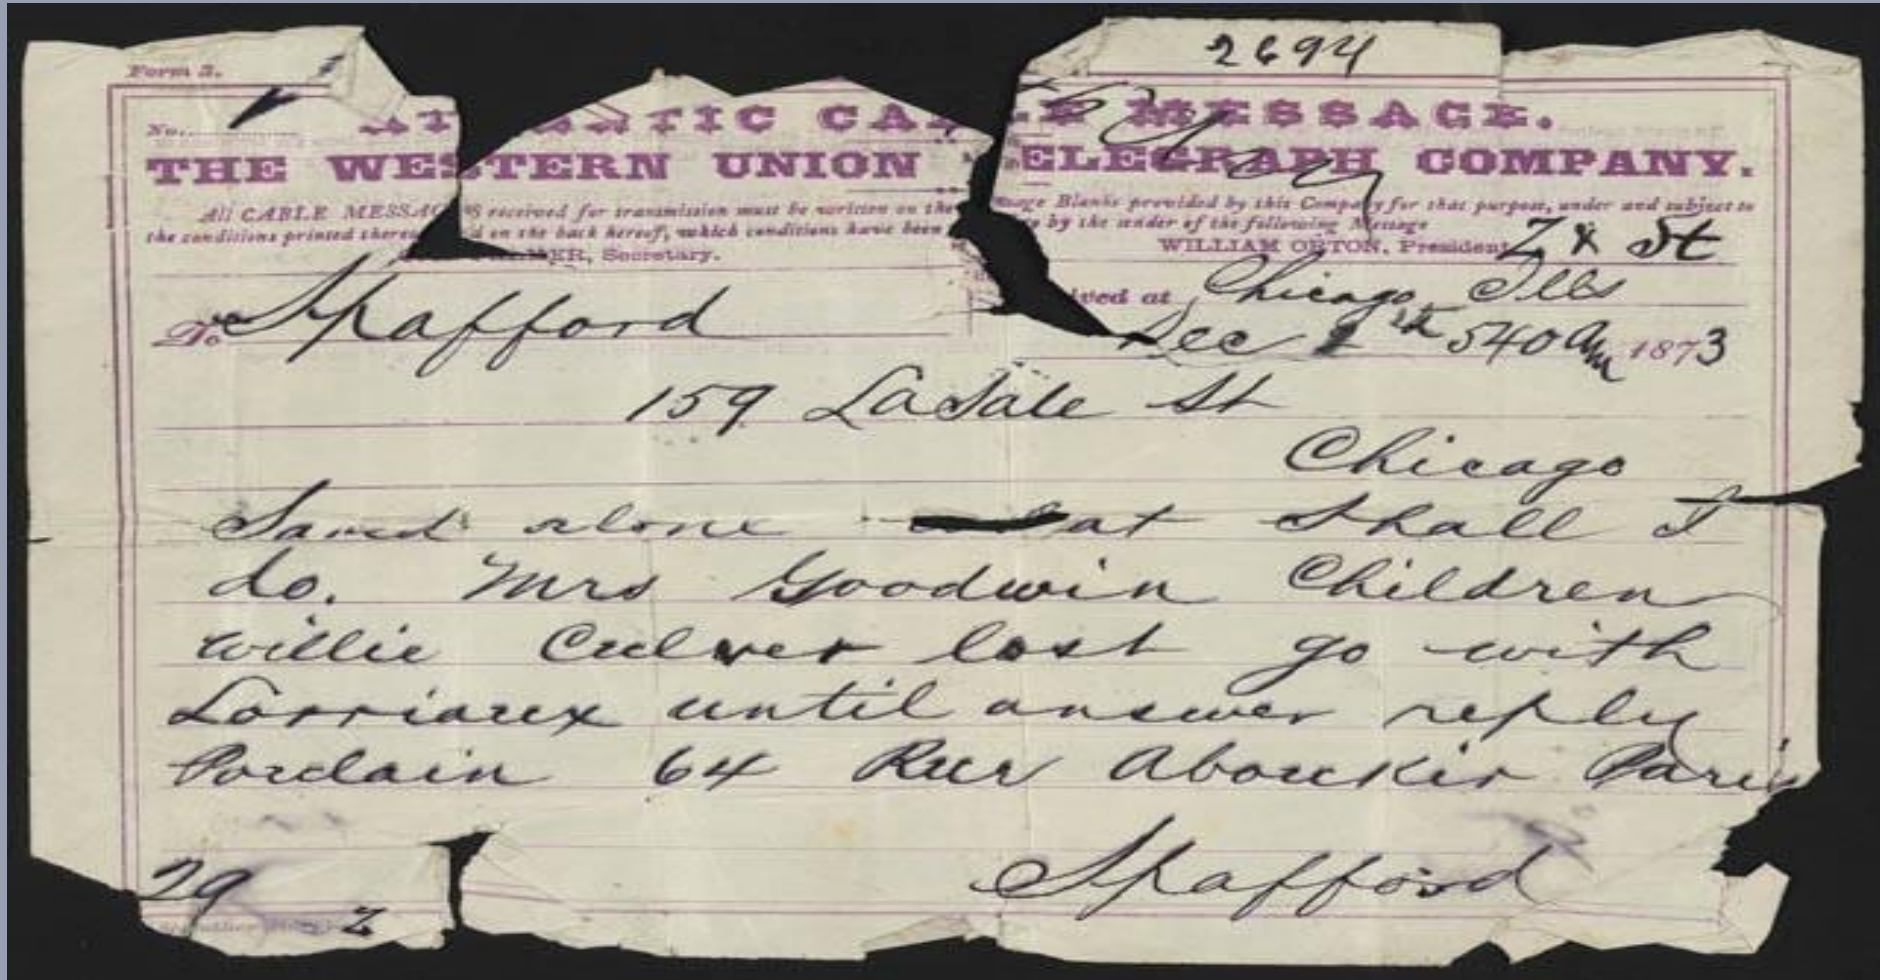 2694
Form 2.
No.
ATLANTIC CABLE MESSAGE.
THE WESTERN UNION TELEGRAPH COMPANY.
All CABLE MESSAGES received for transmission must be written on the Message Blanks provided by this Company for that purpose, under and subject to
the conditions printed thereon and on the back hereof, which conditions have been by the sender of the following Message
ER, Secretary.
WILLIAM ORTON, President.
Z & St
ived at Chicago Ills
To Spafford
Dec 540 am 1873
159 LaSale St
Chicago
Saved alone at shall I
do. Mrs Goodwin Children
willie Culver lost go with
Lorriaux until answer reply
Porclain 64 Rue Aboukir Paris
Spafford
29
Z